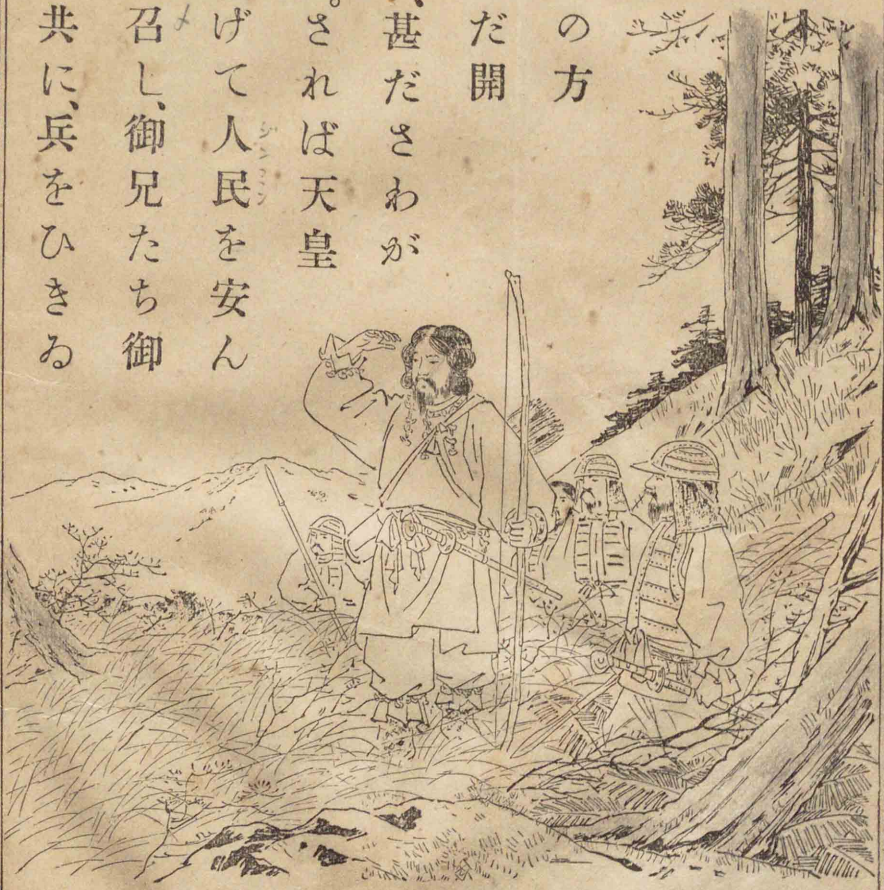 の方
だ開
、甚ださわが
。されば天皇
げて人民を安ん
召し、御兄たち御
共に、兵をひきゐ